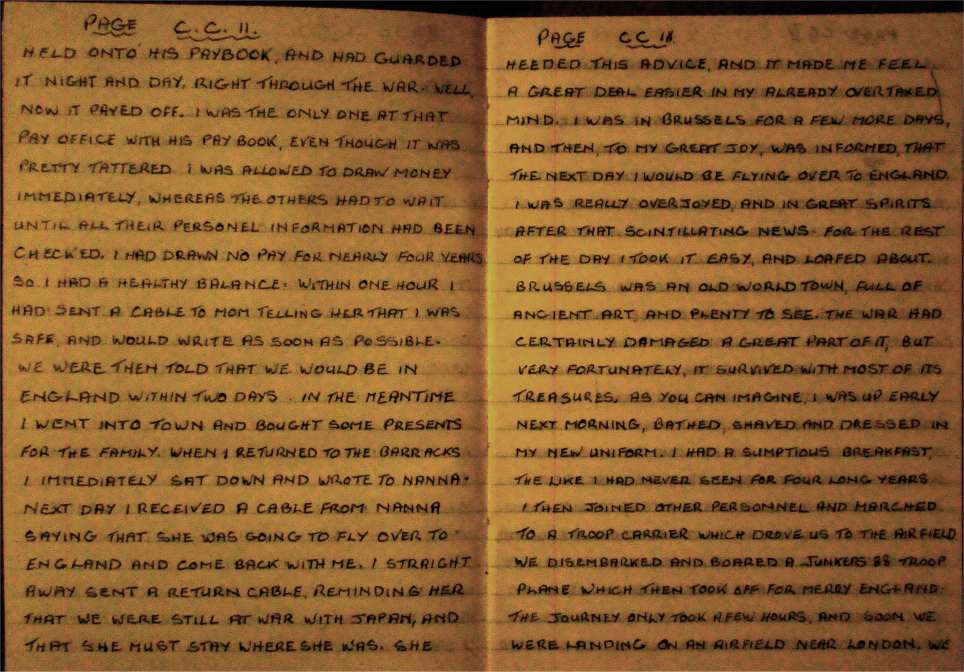 PAGE C.C. 11.
HELD ONTO HIS PAYBOOK, AND HAD GUARDED
IT NIGHT AND DAY, RIGHT THROUGH THE WAR. WELL,
NOW IT PAYED OFF. I WAS THE ONLY ONE AT THAT
PAY OFFICE WITH HIS PAY BOOK, EVEN THOUGH IT WAS
PRETTY TATTERED. I WAS ALLOWED TO DRAW MONEY
IMMEDIATELY, WHEREAS THE OTHERS HAD TO WAIT
UNTIL ALL THEIR PERSONEL INFORMATION HAD BEEN
CHECKED. I HAD DRAWN NO PAY FOR NEARLY FOUR YEARS
SO I HAD A HEALTHY BALANCE. WITHIN ONE HOUR I
HAD SENT A CABLE TO MOM TELLING HER THAT I WAS
SAFE, AND WOULD WRITE AS SOON AS POSSIBLE.
WE WERE THEN TOLD THAT WE WOULD BE IN
ENGLAND WITHIN TWO DAYS. IN THE MEANTIME
I WENT INTO TOWN AND BOUGHT SOME PRESENTS
FOR THE FAMILY. WHEN I RETURNED TO THE BARRACKS
I IMMEDIATELY SAT DOWN AND WROTE TO NANNA.
NEXT DAY I RECEIVED A CABLE FROM NANNA
SAYING THAT SHE WAS GOING TO FLY OVER TO
ENGLAND AND COME BACK WITH ME. I STRAIGHT
AWAY SENT A RETURN CABLE, REMINDING HER
THAT WE WERE STILL AT WAR WITH JAPAN, AND
THAT SHE MUST STAY WHERE SHE WAS. SHE
PAGE CC
HEEDED THIS ADVICE, AND IT MADE ME FEEL
A GREAT DEAL EASIER IN MY ALREADY OVERTAXED
MIND. I WAS IN BRUSSELS FOR A FEW MORE DAYS,
AND THEN, TO MY GREAT JOY, WAS INFORMED, THAT
THE NEXT DAY I WOULD BE FLYING OVER TO ENGLAND.
I WAS REALLY OVERJOYED, AND IN GREAT SPIRITS
AFTER THAT SCINTILLATING NEWS. FOR THE REST
OF THE DAY I TOOK IT EASY, AND LOAFED ABOUT.
BRUSSELS WAS AN OLD WORLD TOWN, FULL OF
ANCIENT ART, AND PLENTY TO SEE. THE WAR HAD
CERTAINLY DAMAGED A GREAT PART OF IT, BUT
VERY FORTUNATELY, IT SURVIVED WITH MOST OF ITS
TREASURES. AS YOU CAN IMAGINE, I WAS UP EARLY
NEXT MORNING, BATHED, SHAVED AND DRESSED IN
MY NEW UNIFORM. I HAD A SUMPTIOUS BREAKFAST,
THE LIKE I HAD NEVER SEEN FOR FOUR LONG YEARS
I THEN JOINED OTHER PERSONNEL AND MARCHED
TO A TROOP CARRIER WHICH DROVE US TO THE AIRFIELD
WE DISEMBARKED AND BOARED A JUNKERS 88 TROOP
PLANE WHICH THEN TOOK OFF FOR MERRY ENGLAND.
THE JOURNEY ONLY TOOK A FEW HOURS, AND SOON WE
WERE LANDING ON AN AIRFIELD NEAR LONDON. WE